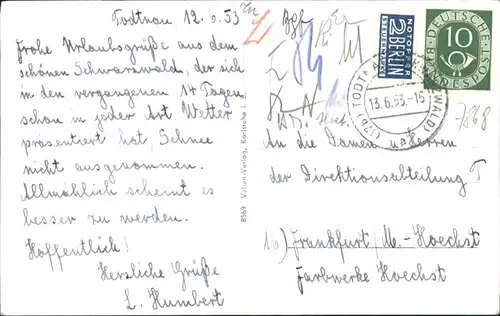 Todtnau 12.6.53
Frohe Urlaubsgrüße aus dem
schönen Schwarzwald, der sich
in den vergangenen 14 Tagen
schon in jeder Art Wetter
präsentiert hat, Schnee
nicht ausgenommen.
Allmählich scheint es
besser zu werden.
Hoffentlich!
Herzliche Grüße
L. Humbert
8569 Karlsruhe
NOTOPFER
2 BERLIN
STEUERMARKE
DEUTSCHE BUNDESPOST
10
13.6.53.-15
7868
An die Damen u. Herren
der Direktionsabteilung T
16) Frankfurt/M.-Hoechst
Farbwerke Hoechst